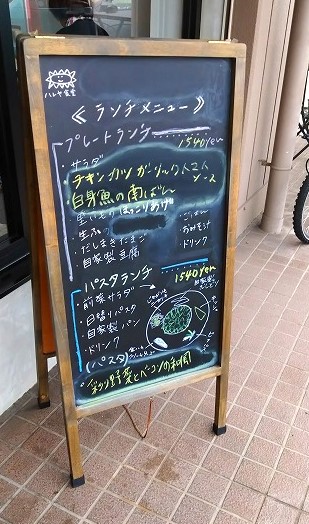 ハレヤ食堂
《ランチメニュー》
プレートランチ 1540yen
・サラダ
・チキンカツ ガーリックトマトソース
・白身魚の南ばん
・ほっこりあげ
・生ふ
・だしまきたまご
・自家製豆腐
・ごはん
・おみそ汁
・ドリンク
パスタランチ 1540yen
・前菜サラダ
・日替りパスタ
・自家製パン
・ドリンク
(パスタ)
野菜とベーコンの和風